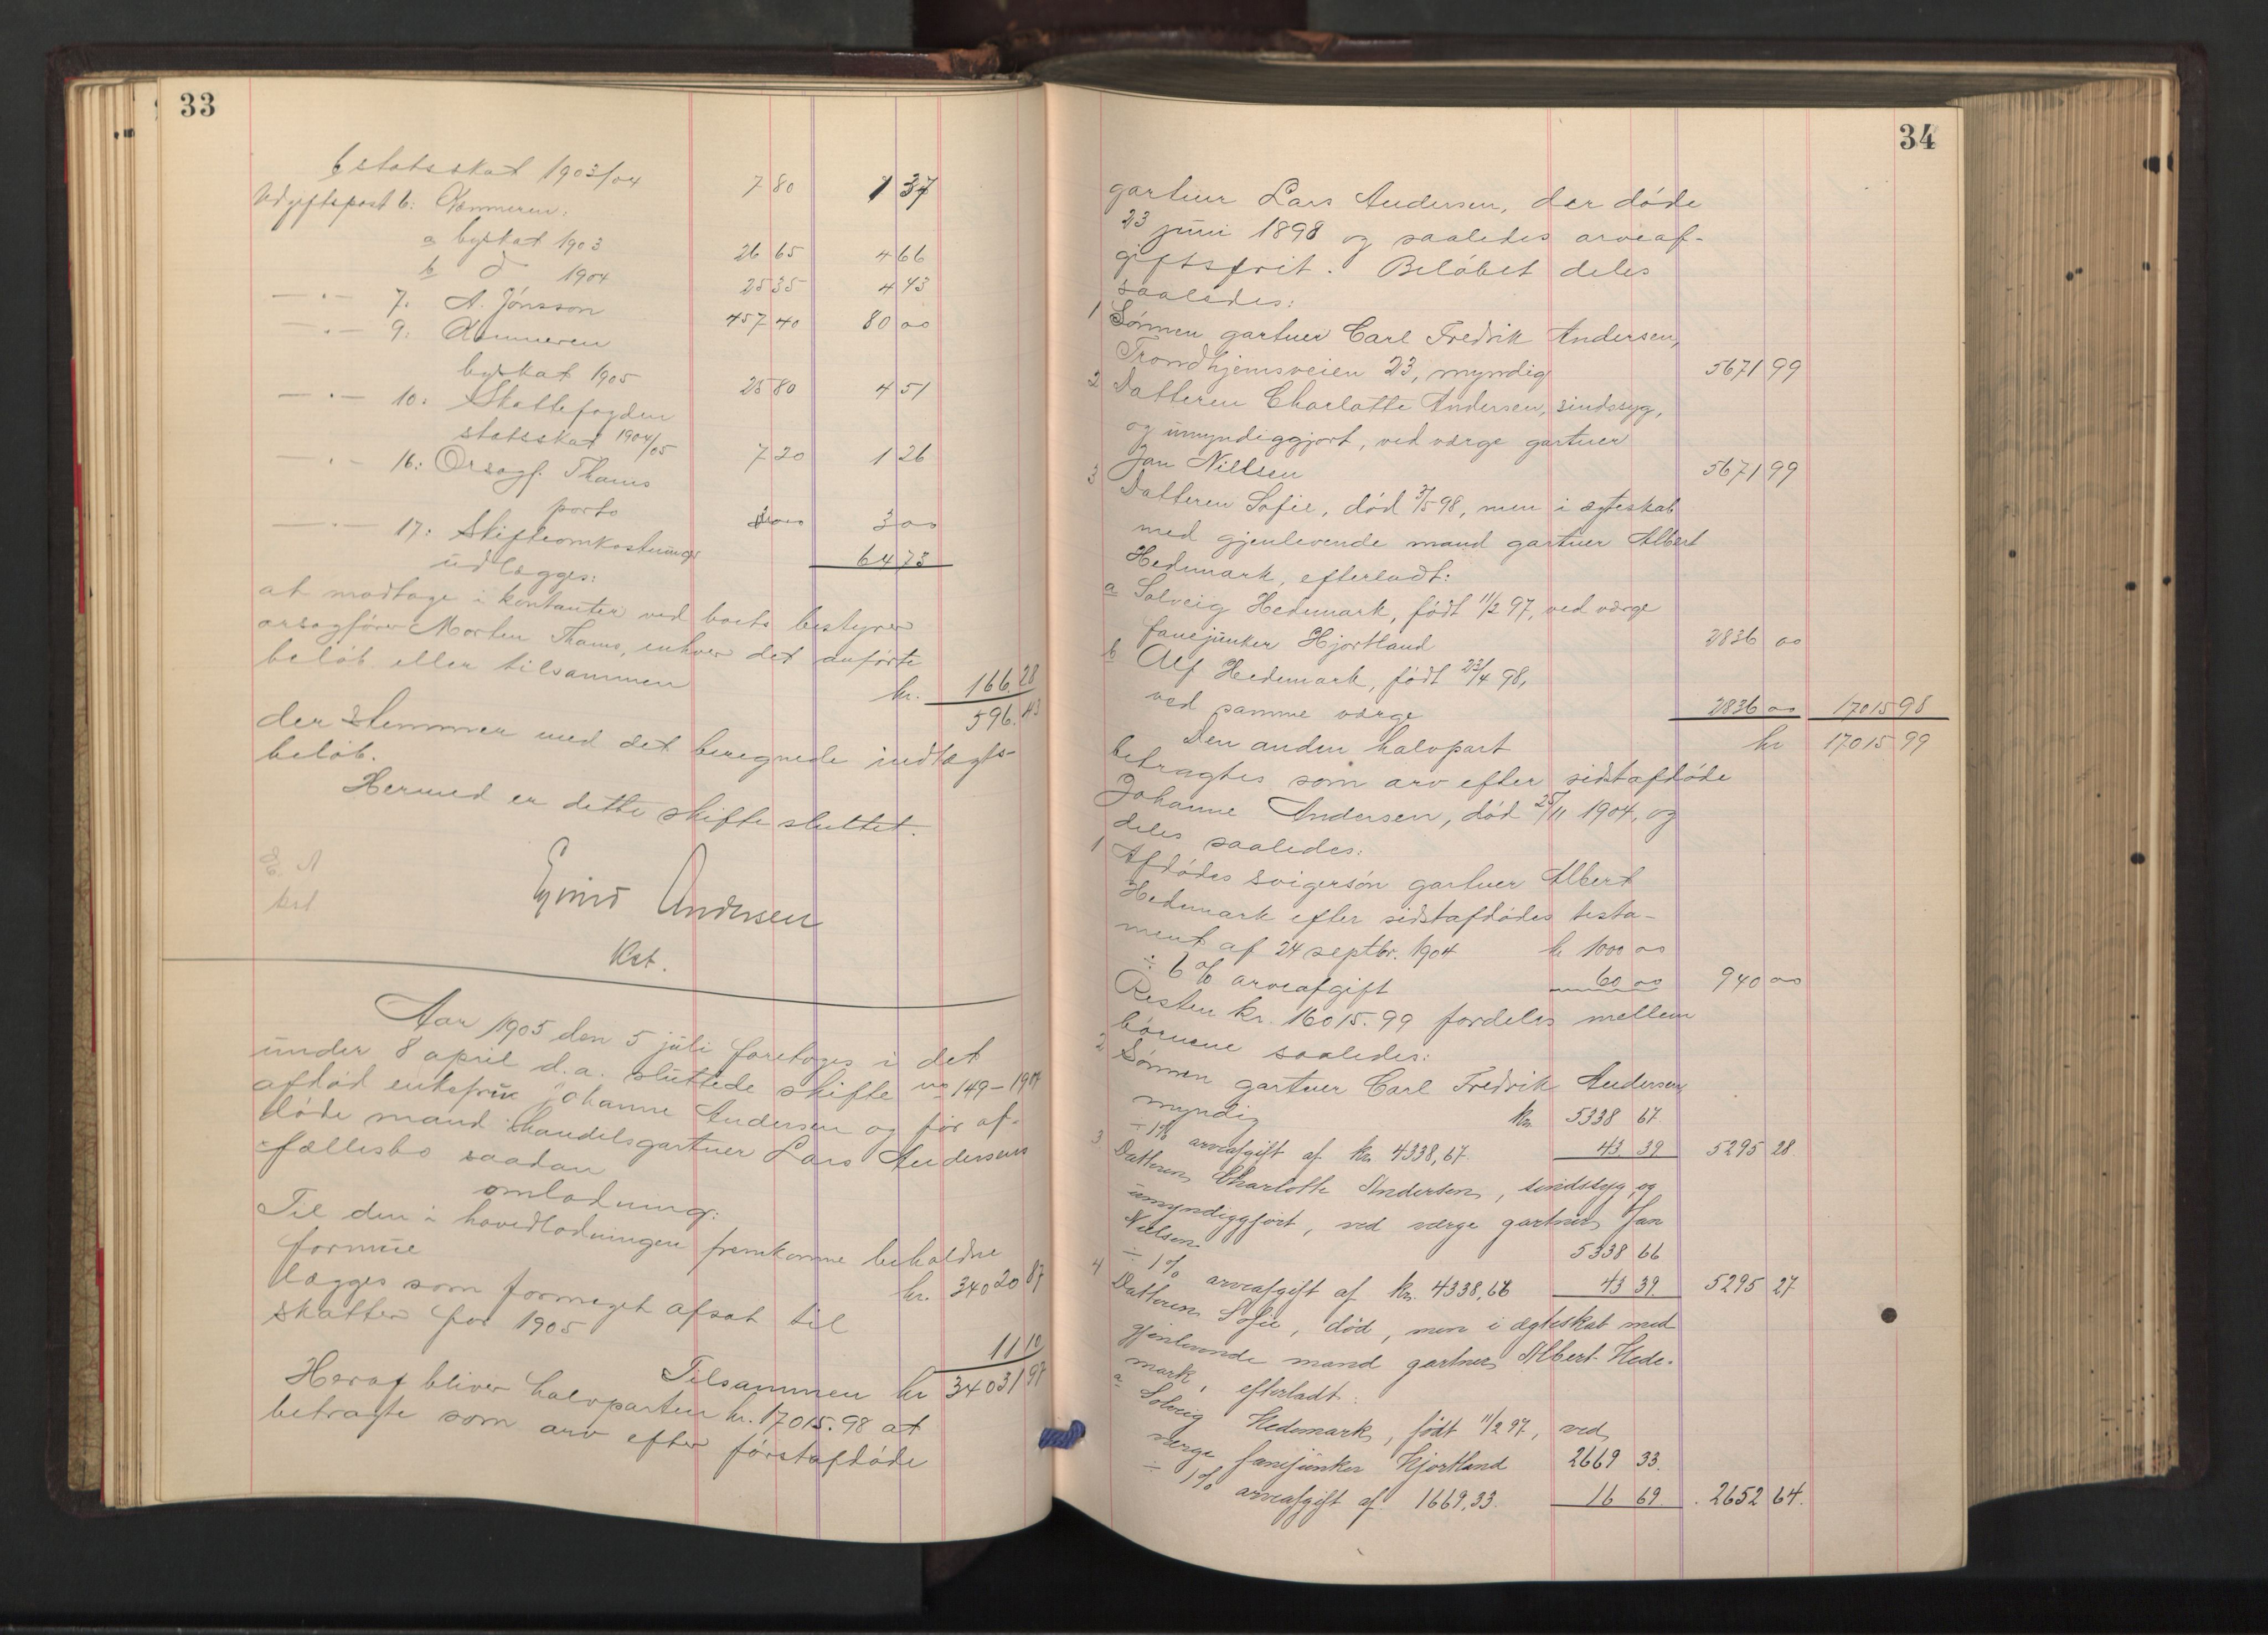 33
b statsskat 1903/04 7 80 1 37
Udgiftspost 6: Kæmneren,
a byskat 1903 26 65 4 66
b do 1904 25 35 4 43
— " — 7. A. Jónsson 457 40 80 00
— " — 9. Kæmneren
byskat 1905 25 80 4 51
— " — 10: Skattefogden
statsskat 1904/05 7 20 1 26
— " — 16: Orsagf. Thams
porto 3 00 3 00
— " — 17: Skifteomkostninger 64 73
udlægges:
at modtage i kontanter ved boets bestyrer
orsagfører Morten Thams, enhver det anførte
beløb eller tilsammen kr. 166.28
596.43
der stemmer med det beregnede indtægts-
beløb.
Hermed er dette skifte sluttet.
E. A
kst
Eyvind Andersen
Kst.
Aar 1905 den 5 juli foretoges i det
under 8 april d.a. sluttede skifte no 149–1904
afdød enkefru Johanne Andersen og før af-
døde mand handelsgartner Lars Andersens
fællesbo saadan
omlodning:
Til den i hovedlodningen fremkomne beholdne
formue kr. 34020 87
lægges som formeget afsat til
skatter for 1905 11 10
Tilsammen kr 34031 97
Heraf bliver halvparten kr. 17015.98 at
betragte som arv efter førstafdøde
34
gartner Lars Andersen, der døde
23 juni 1898 og saaledes arveaf-
giftsfrit. Beløbet deles
saaledes:
1 Sønnen gartner Carl Fredrik Andersen,
Trondhjemsveien 23, myndig 5671 99
2 Datteren Charlotte Andersen, sindssyg,
og umyndiggjort, ved værge gartner
Jan Nielsen 5671 99
3 Datteren Sofie, død 3/5 98, men i ægteskab
med gjenlevende mand gartner Albert
Hedemark, efterladt:
a Solveig Hedemark, født 11/2 97, ved værge
fanejunker Hjortland 2836 00
b Alf Hedemark, født 23/4 98,
ved samme værge 2836 00 17015 98
Den anden halvpart kr 17015 99
betragtes som arv efter sidstafdøde
Johanne Andersen, død 25/11 1904, og
deles saaledes:
1 Afdødes svigersøn gartner Albert
Hedemark efter sidstafdødes testa-
ment af 24 septbr. 1904 kr 1000 00
÷ 6 % arveafgift 60 00 940 00
Resten kr. 16015.99 fordeles mellem
børnene saaledes:
2 Sønnen gartner Carl Fredrik Andersen,
myndig kr. 5338 67
÷ 1% arveafgift af kr. 4338,67 43 39 5295 28.
3 Datteren Charlotte Andersen, sindssyg og
umyndiggjort, ved værge gartner Jan
Nielsen 5338 66
÷ 1% arveafgift af kr. 4338,66 43 39 5295 27
4 Datteren Sofie, død, men i ægteskab med
gjenlevende mand gartner Albert Hede-
mark, efterladt:
a Solveig Hedemark, født 11/2 97, ved
værge fanejunker Hjortland 2669 33.
÷ 1% arveafgift af 1669,33. 16 69 2652 64.